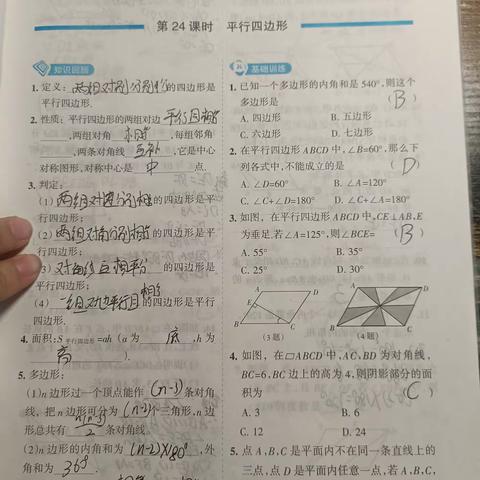 第 24 课时 平行四边形
知识回顾
1. 定义:两组对边分别平行的四边形是
平行四边形.
2. 性质:平行四边形的两组对边平行且相等
,两组对角相等,每组邻角
,两条对角线互补,它是中心
对称图形,对称中心是中点.
3. 判定:
(1)两组对边分别相等的四边形是平
行四边形;
(2)两组对角分别相等的四边形是平
行四边形;
(3)对角线互相平分的四边形是
平行四边形;
(4)一组对边平行且相等的四边形是平行
四边形.
4. 面积:S平行四边形=ah(a 为底,h 为
高).
5. 多边形:
(1)n 边形过一个顶点能作(n-3)条对角
线,把 n 边形可分为(n-2)个三角形,n 边
形总共有n(n-3)/2条对角线.
(2)n 边形的内角和为(n-2)×180°,外
角和为360°
基础训练
1. 已知一个多边形的内角和是 540°,则这个
多边形是 (B)
A. 四边形 B. 五边形
C. 六边形 D. 七边形
2. 在平行四边形 ABCD 中,∠B=60°,那么下
列各式中,不能成立的是 (D)
A. ∠D=60° B. ∠A=120°
C. ∠C+∠D=180° D. ∠C+∠A=180°
3. 如图,在平行四边形 ABCD 中,CE⊥AB,E
为垂足.若∠A=125°,则∠BCE= (B)
A. 55° B. 35°
C. 25° D. 30°
A D E B C
A D B C
(3题) (4题)
4. 如图,在▱ABCD 中,AC,BD 为对角线,
BC=6,BC 边上的高为 4,则阴影部分的面
积为 (C)
A. 3 B. 6
C. 12 D. 24
5. 点 A,B,C 是平面内不在同一条直线上的
三点,点 D 是平面内任意一点,若 A,B,C,